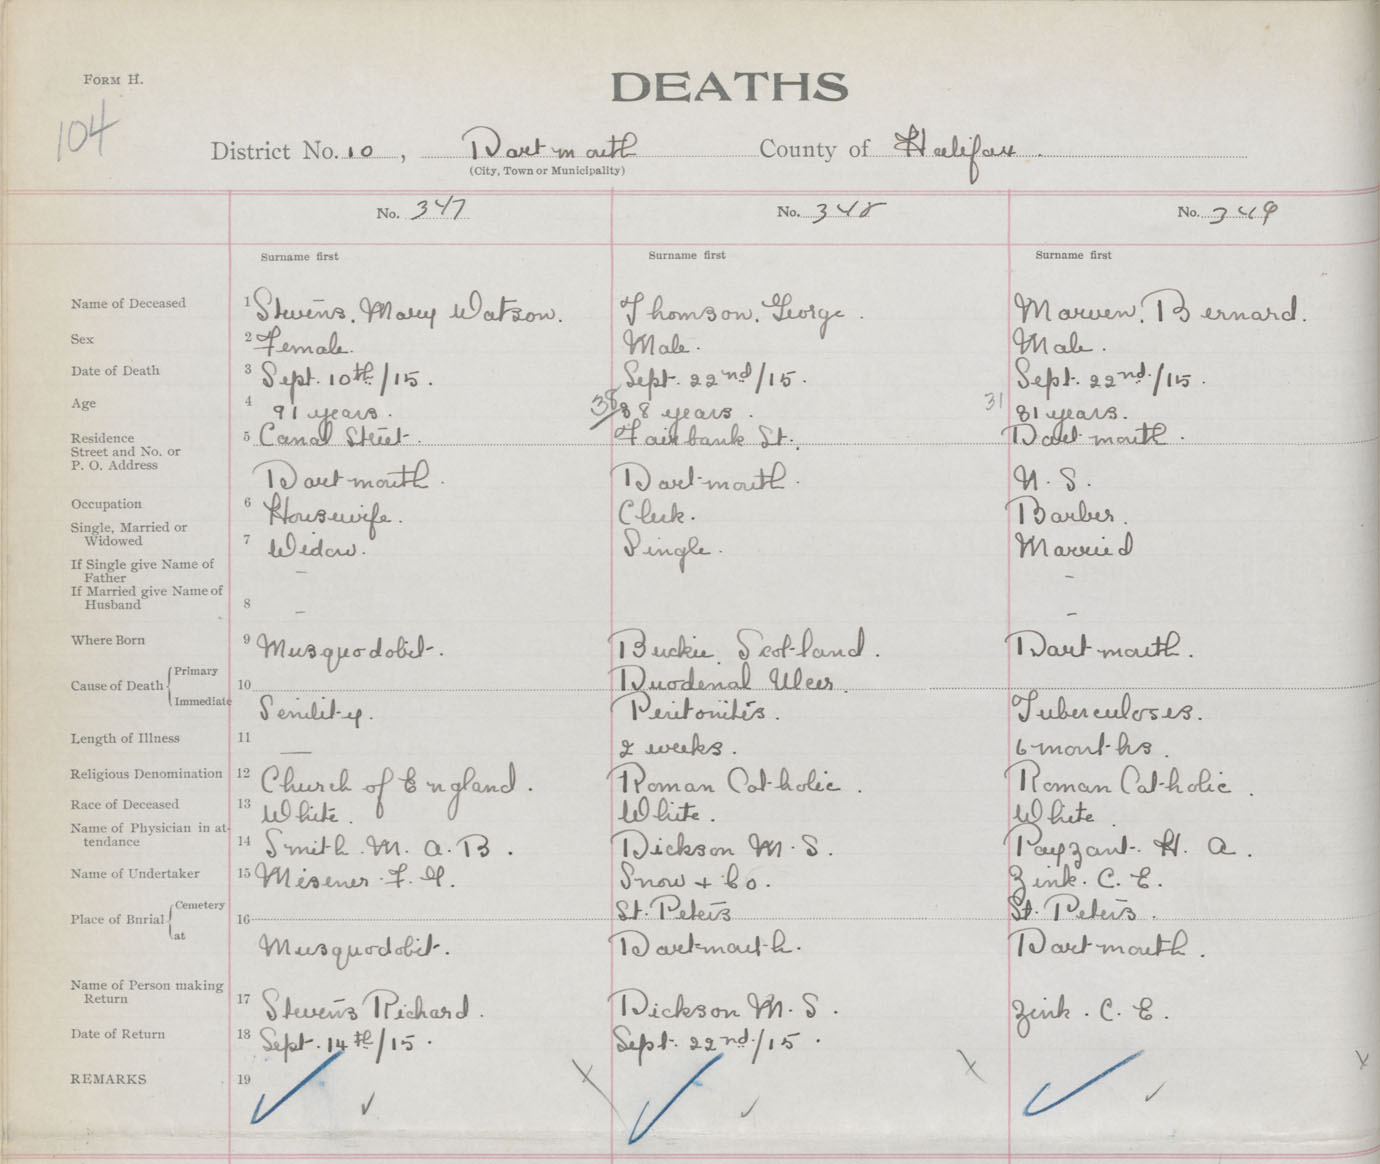 FORM H.
DEATHS
104
District No. 10, Dartmouth County of Halifax.
(City, Town or Municipality)
No. 347 No. 348 No. 349
Surname first Surname first Surname first
Name of Deceased 1 Stevens, Mary Watson. Thomson, George. Marven, Bernard.
Sex 2 Female. Male. Male.
Date of Death 3 Sept. 10th/15. Sept. 22nd/15. Sept. 22nd/15.
Age 4 91 years. 38 38 years. 31 31 years.
Residence 5 Canal Street. Fairbank St. Dartmouth.
Street and No. or
P. O. Address Dartmouth. Dartmouth. N. S.
Occupation 6 Housewife. Clerk. Barber.
Single, Married or
Widowed 7 Widow. Single. Married
If Single give Name of
Father – –
If Married give Name of
Husband 8 – –
Where Born 9 Musquodobit. Buckie, Scotland. Dartmouth.
Cause of Death Primary 10 Duodenal Ulcer.
Immediate Senility. Peritonitis. Tuberculoses.
Length of Illness 11 — 2 weeks. 6 months.
Religious Denomination 12 Church of England. Roman Catholic. Roman Catholic.
Race of Deceased 13 White. White. White
Name of Physician in at-
tendance 14 Smith. M. A. B. Dickson M. S. Payzant. H. A.
Name of Undertaker 15 Misener. F. G. Snow + Co. Zink. C. E.
Place of Burial Cemetery 16 St. Peter's St. Peter's.
at Musquodobit. Dartmouth. Dartmouth.
Name of Person making
Return 17 Stevens Richard. Dickson M. S. Zink. C. E.
Date of Return 18 Sept. 14th/15. Sept. 22nd/15.
REMARKS 19